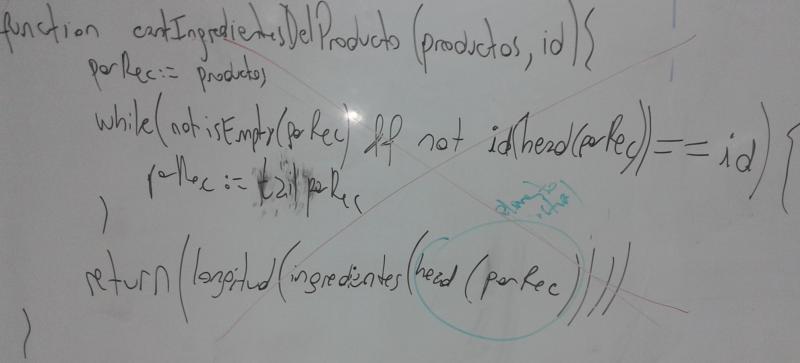 function cantIngredientesDelProducto (productos, id){
porRec := productos
while(not isEmpty(porRec) && not id(head(porRec))==id) {
porRec := tail porRec
}
elemento
actual
return(longitud(ingredientes(head(porRec))))
}